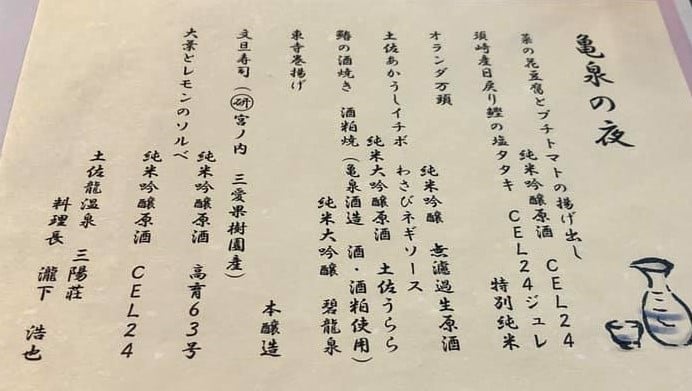 亀泉の夜
菜の花豆腐とプチトマトの揚げ出し
純米吟醸原酒 CEL24
須崎産日戻り鰹の塩タタキ CEL24ジュレ
特別純米
オランダ万頭
純米吟醸 無濾過生原酒
土佐あかうしイチボ わさびネギソース
純米大吟醸原酒 土佐うらら
鰆の酒焼き 酒粕焼(亀泉酒造 酒・酒粕使用)
純米大吟醸 碧龍泉
東寺巻揚げ
本醸造
文旦寿司(研宮ノ内 三愛果樹園産)
純米吟醸原酒 高育63号
大葉とレモンのソルベ
純米吟醸原酒 CEL24
土佐龍温泉 三陽荘
料理長 瀧下 浩也